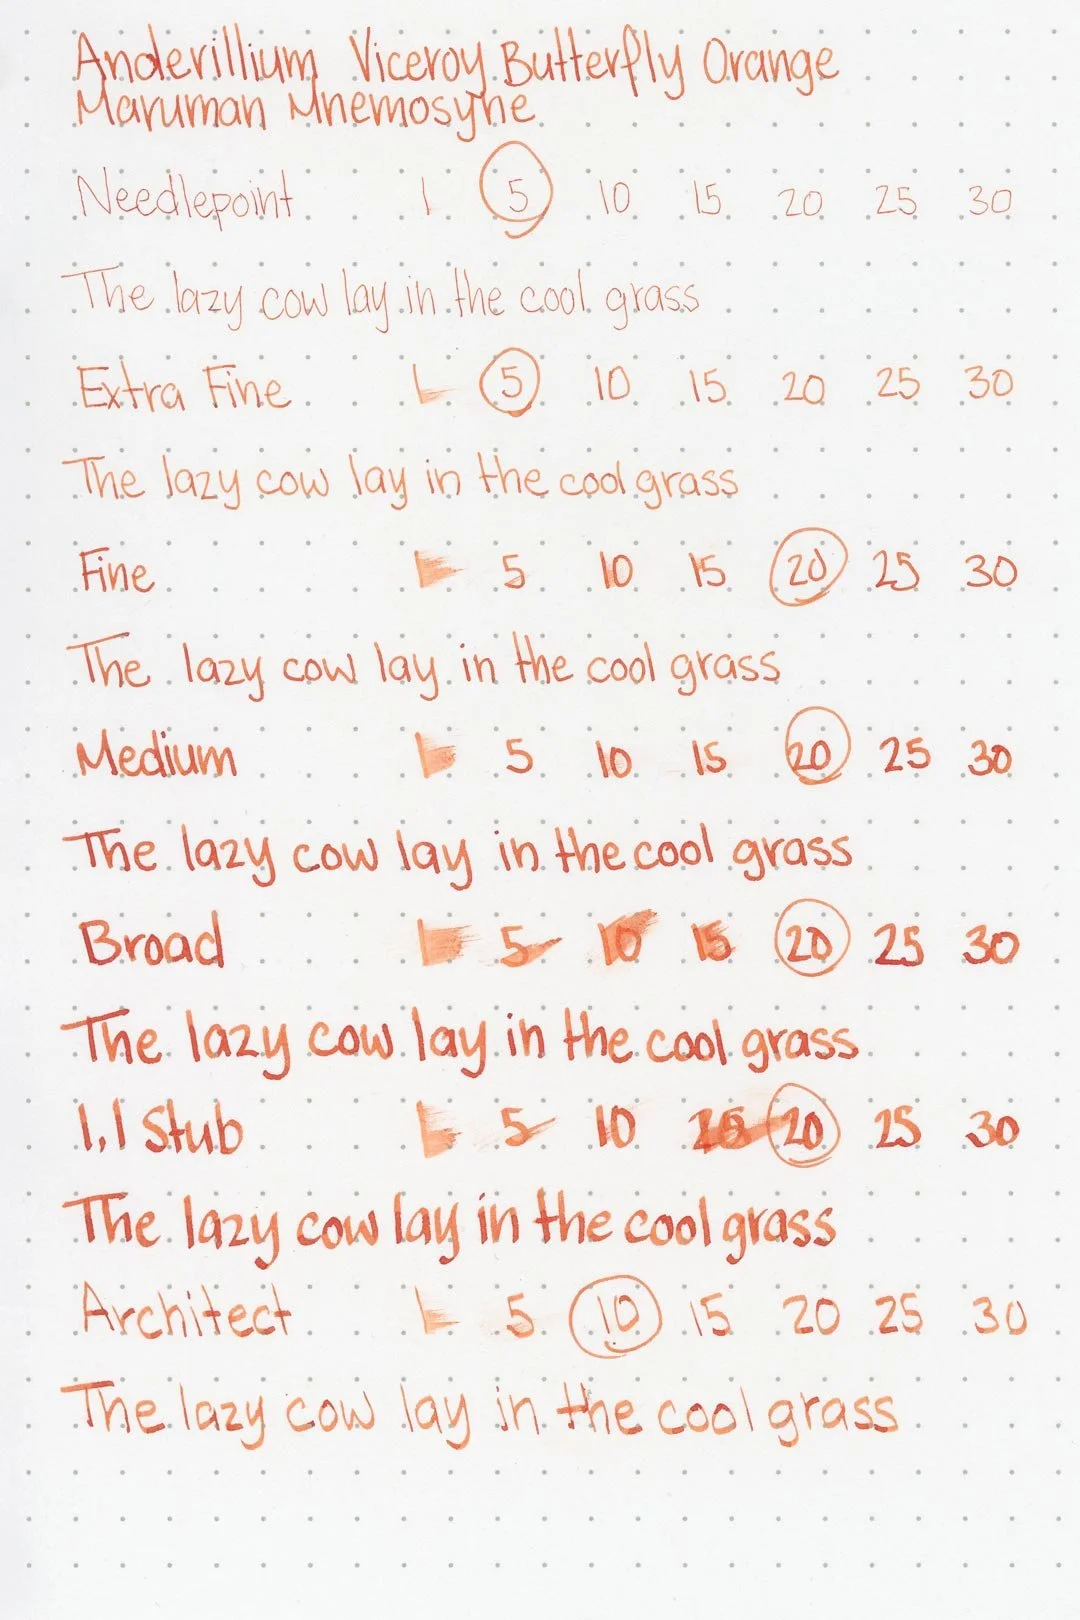 Anderillium Viceroy Butterfly Orange
Maruman Mnemosyne
Needlepoint 1 5 10 15 20 25 30
The lazy cow lay in the cool grass
Extra Fine 1 5 10 15 20 25 30
The lazy cow lay in the cool grass
Fine 1 5 10 15 20 25 30
The lazy cow lay in the cool grass
Medium 1 5 10 15 20 25 30
The lazy cow lay in the cool grass
Broad 1 5 10 15 20 25 30
The lazy cow lay in the cool grass
1.1 Stub 1 5 10 15 20 25 30
The lazy cow lay in the cool grass
Architect 1 5 10 15 20 25 30
The lazy cow lay in the cool grass